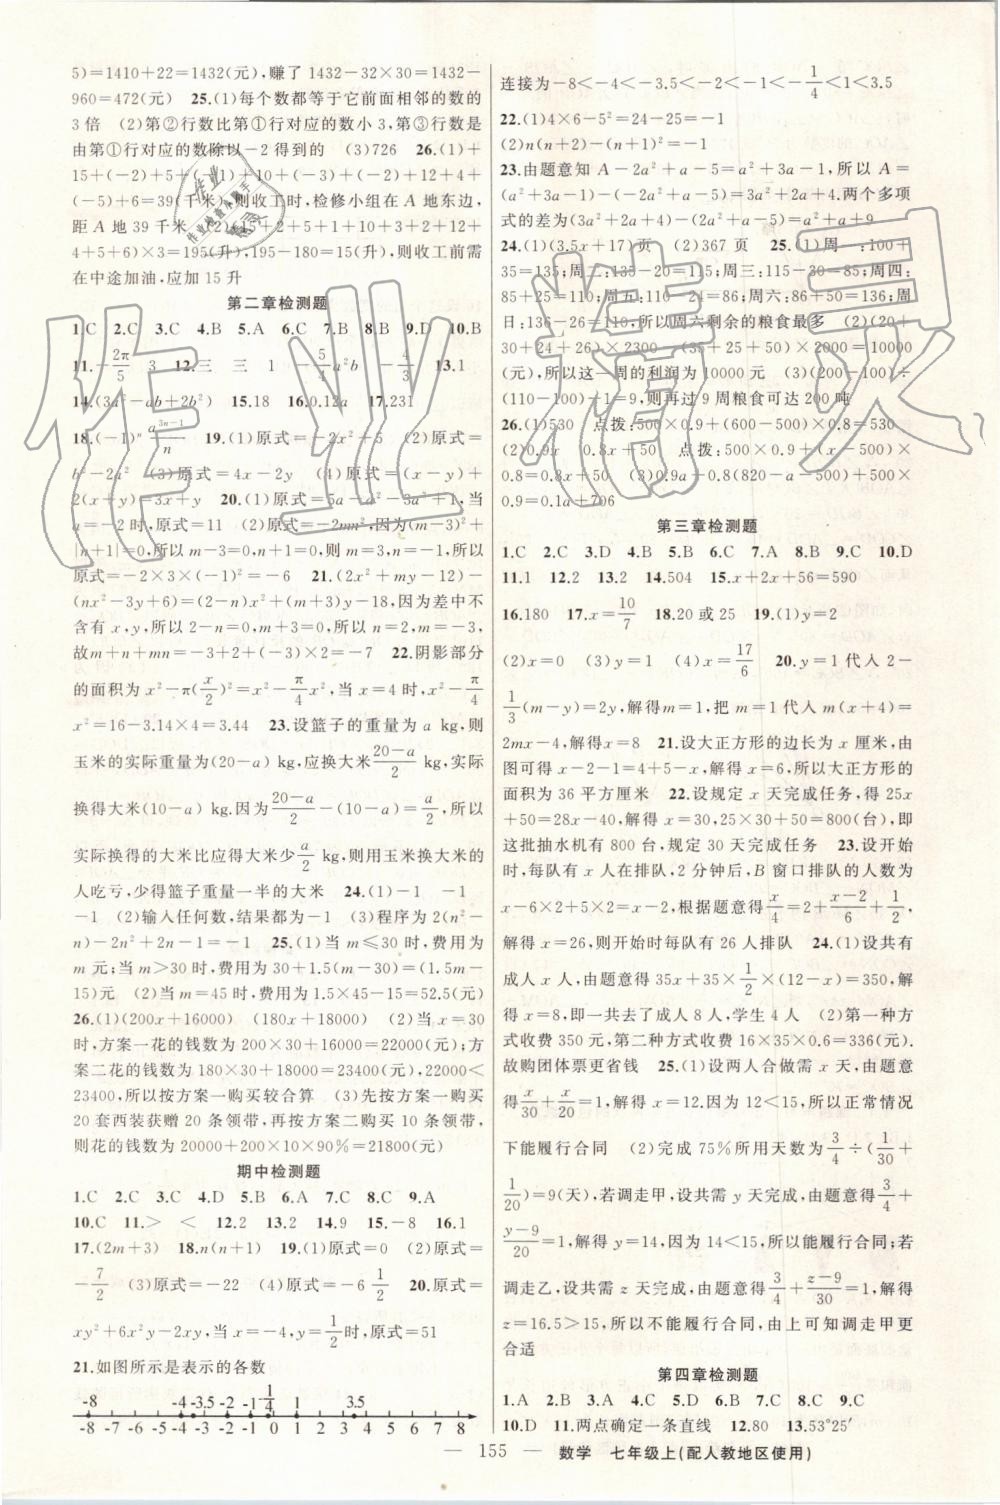 5)=1410+22=1432(元),赚了 1432-32×30=1432-
960=472(元) 25.(1)每个数都等于它前面相邻的数的
3倍 (2)第②行数比第①行对应的数小3,第③行数是
由第①行对应的数除以-2得到的 (3)726 26.(1)+
15+(-2)+5+(-1)+10+(-3)+(-2)+12+4+
(-5)+6=39(千米),则收工时,检修小组在A地东边,
距A地39千米 (2)(15+2+5+1+10+3+2+12+
4+5+6)×3=195(升),195-180=15(升),故收工前需
在中途加油,应加15升
第二章检测题
1.C 2.C 3.C 4.B 5.A 6.C 7.B 8.B 9.D 10.B
11.-2π/5 3 12.三 三 1 -5/4a²b -4/3 13.1
14.(3a²-ab+2b²) 15.18 16.0.12a 17.231
18.(-1)ⁿ a³ⁿ⁻¹/n 19.(1)原式=-2x²+5 (2)原式=
b²-2a² (3)原式=4x-2y (4)原式=(x-y)+
2(x+y)=3x+y 20.(1)原式=5a-a²-3a²+1,当
a=-2时,原式=11 (2)原式=-2mn²,因为(m-3)²+
|n+1|=0,所以m-3=0,n+1=0,所以m=3,n=-1,
原式=-2×3×(-1)²=-6 21.(2x²+my-12)-
(nx²-3y+6)=(2-n)x²+(m+3)y-18,因为差中不
含有x,y,所以2-n=0,m+3=0,所以n=2,m=-3,
故m+n+mn=-3+2+(-3)×2=-7 22.阴影部分
的面积为x²-π(x/2)²=x²-π/4x²,当x=4时,x²-π/4
x²=16-3.14×4=3.44 23.设篮子的重量为a kg,则
玉米的实际重量为(20-a) kg,应换大米(20-a)/2 kg,实际
换得大米(10-a) kg.因为(20-a)/2-(10-a)=a/2,所以
实际换得的大米比应得大米少a/2 kg,则用玉米换大米的
人吃亏,少得篮子重量一半的大米 24.(1)-1 -1
-1 (2)输入任何数,结果都为-1 (3)程序为2(n²-
n)-2n²+2n-1=-1 25.(1)当m≤30时,费用为
m元;当m>30时,费用为30+1.5(m-30)=(1.5m-
15)元 (2)当m=45时,费用为1.5×45-15=52.5(元)
26.(1)(200x+16000) (180x+18000) (2)当x=30
时,方案一花的钱数为200×30+16000=22000(元);方
案二花的钱数为180×30+18000=23400(元),22000<
23400,所以按方案一购买较合算 (3)先按方案一购买
20套西装获赠20条领带,再按方案二购买10条领带,
则花的钱数为20000+200×10×90%=21800(元)
期中检测题
1.C 2.C 3.C 4.D 5.B 6.A 7.C 8.C 9.A
10.C 11.> < 12.2 13.2 14.9 15.-8 16.1
17.(2m+3) 18.n(n+1) 19.(1)原式=0 (2)原式=
-7/2 (3)原式=-22 (4)原式=-6 1/2 20.原式=
xy²+6x²y-2xy,当x=-4,y=1/2时,原式=51
21.如图所示是表示的各数
-8 -4 -3.5 -2 -1 -1/4 1 3.5
-8 -7 -6 -5 -4 -3 -2 -1 0 1 2 3 4 5 6 7 8
连接为-8<-4<-3.5<-2<-1<-1/4<1<3.5
22.(1)4×6-5²=24-25=-1
(2)n(n+2)-(n+1)²=-1
23.由题意知A-2a²+a-5=a²+3a-1,所以A=
(a²+3a-1)-(-2a²+a-5)=3a²+2a+4.两个多项
式的差为(3a²+2a+4)-(-2a²+a-5)=5a²+a+9
24.(1)(3.5x+17)页 (2)367页 25.(1)周一:100+
35=135;周二:135-20=115;周三:115-30=85;周四:
85+25=110;周五:110-24=86;周六:86+50=136;周
日:136-26=110,所以周六剩余的粮食最多 (2)(20+
30+24+26)×2300-(35+25+50)×2000=10000
(元),所以这一周的利润为10000元 (3)(200-110)÷
(110-100)+1=9,则再过9周粮食可达200吨
26.(1)530 点拨:500×0.9+(600-500)×0.8=530
(2)0.9x 0.8x+50 点拨:500×0.9+(x-500)×
0.8=0.8x+50 (3)0.9a+0.8(820-a-500)+500×
0.9=0.1a+706
第三章检测题
1.C 2.C 3.D 4.B 5.B 6.C 7.A 8.B 9.C 10.D
11.1 12.2 13.2 14.504 15.x+2x+56=590
16.180 17.x=10/7 18.20或25 19.(1)y=2
(2)x=0 (3)y=1 (4)x=17/6 20.y=1代入2-
1/3(m-y)=2y,解得m=1,把m=1代入m(x+4)=
2mx-4,解得x=8 21.设大正方形的边长为x厘米,由
图可得x-2-1=4+5-x,解得x=6,所以大正方形的
面积为36平方厘米 22.设规定x天完成任务,得25x
+50=28x-40,解得x=30,25×30+50=800(台),即
这批抽水机有800台,规定30天完成任务 23.设开始
时,每队有x人在排队,2分钟后,B窗口排队的人数为
x-6×2+5×2=x-2,根据题意得x/4=2+(x-2)/6+1/2,
解得x=26,则开始时每队有26人排队 24.(1)设共有
成人x人,由题意得35x+35×1/2×(12-x)=350,解
得x=8,即一共去了成人8人,学生4人 (2)第一种方
式收费350元,第二种方式收费16×35×0.6=336(元).
故购团体票更省钱 25.(1)设两人合做需x天,由题意
得x/30+x/20=1,解得x=12.因为12<15,所以正常情况
下能履行合同 (2)完成75%所用天数为3/4÷(1/30+
1/20)=9(天),若调走甲,设共需y天完成,由题意得3/4+
(y-9)/20=1,解得y=14,因为14<15,所以能履行合同;若
调走乙,设共需z天完成,由题意得3/4+(z-9)/30=1,解得
z=16.5>15,所以不能履行合同,由上可知调走甲更
合适
第四章检测题
1.A 2.B 3.A 4.C 5.D 6.B 7.C 8.C 9.C
10.D 11.两点确定一条直线 12.80 13.53°25′
— 155 — 数学 七年级上(配人教地区使用)
作业精灵